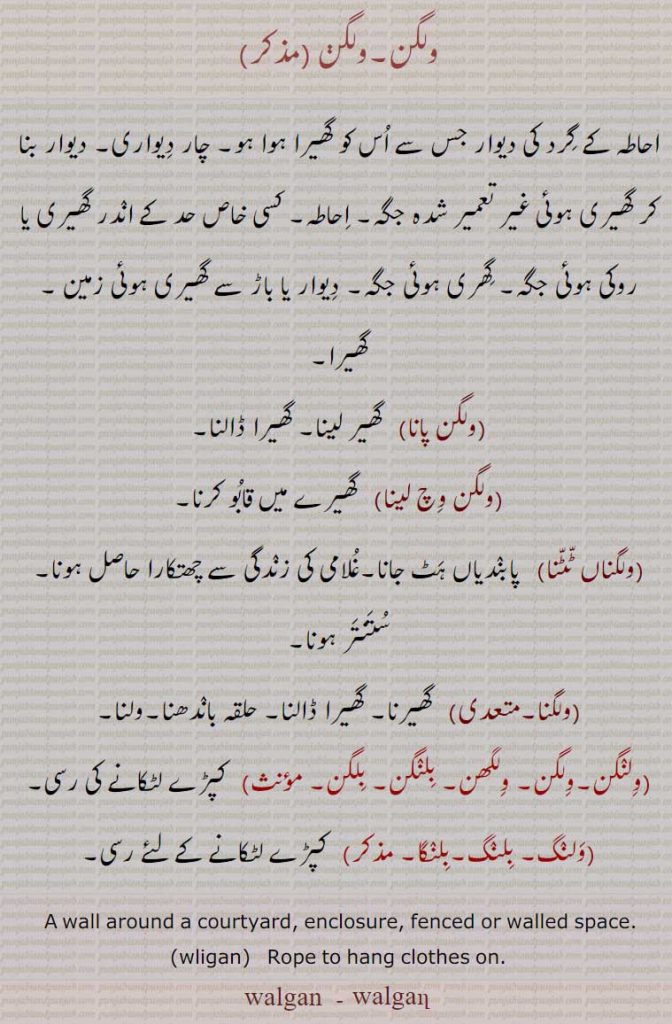 ولگن۔ولگݨ (مذکر)
احاطہ کے گِرد کی دیوار جس سے اُس کو گھیرا ہوا ہو۔ چار دِیواری۔ دیوار بنا
کر گھیری ہوئی غیر تعمیر شدہ جگہ۔ اِحاطہ۔ کسی خاص حد کے انْدر گھیری یا
روکی ہوئی جگہ۔ گِھری ہوئی جگہ۔ دِیوار یا باڑ سے گھیری ہوئی زمین ۔
گھیرا۔
(ولگن پانا) گھیر لینا۔ گھیرا ڈالنا۔
(ولگن وِچ لینا) گھیرے میں قابُو کرنا۔
(ولگناں ٹُٹّنا) پابنْدیاں ہَٹ جانا۔غُلامی کی زنْدگی سے چھتکارا حاصل ہونا۔
سُتَنتَر ہونا۔
(ولگنا۔متعدی) گھیرنا۔ گھیرا ڈالنا۔ حلقہ بانْدھنا۔ولنا۔
(وِلنْگن۔وِلگن۔ وِلگھن۔ بِلنْگن۔ بِلگن۔ مؤنث) کپڑے لٹکانے کی رسی۔
(وَلنگ۔ بِلنْگ۔بِلنْگا۔ مذکر) کپڑے لٹکانے کے لئے رسی۔
A wall around a courtyard, enclosure, fenced or walled space.
(wligan) Rope to hang clothes on.
walgan - walgaɳ